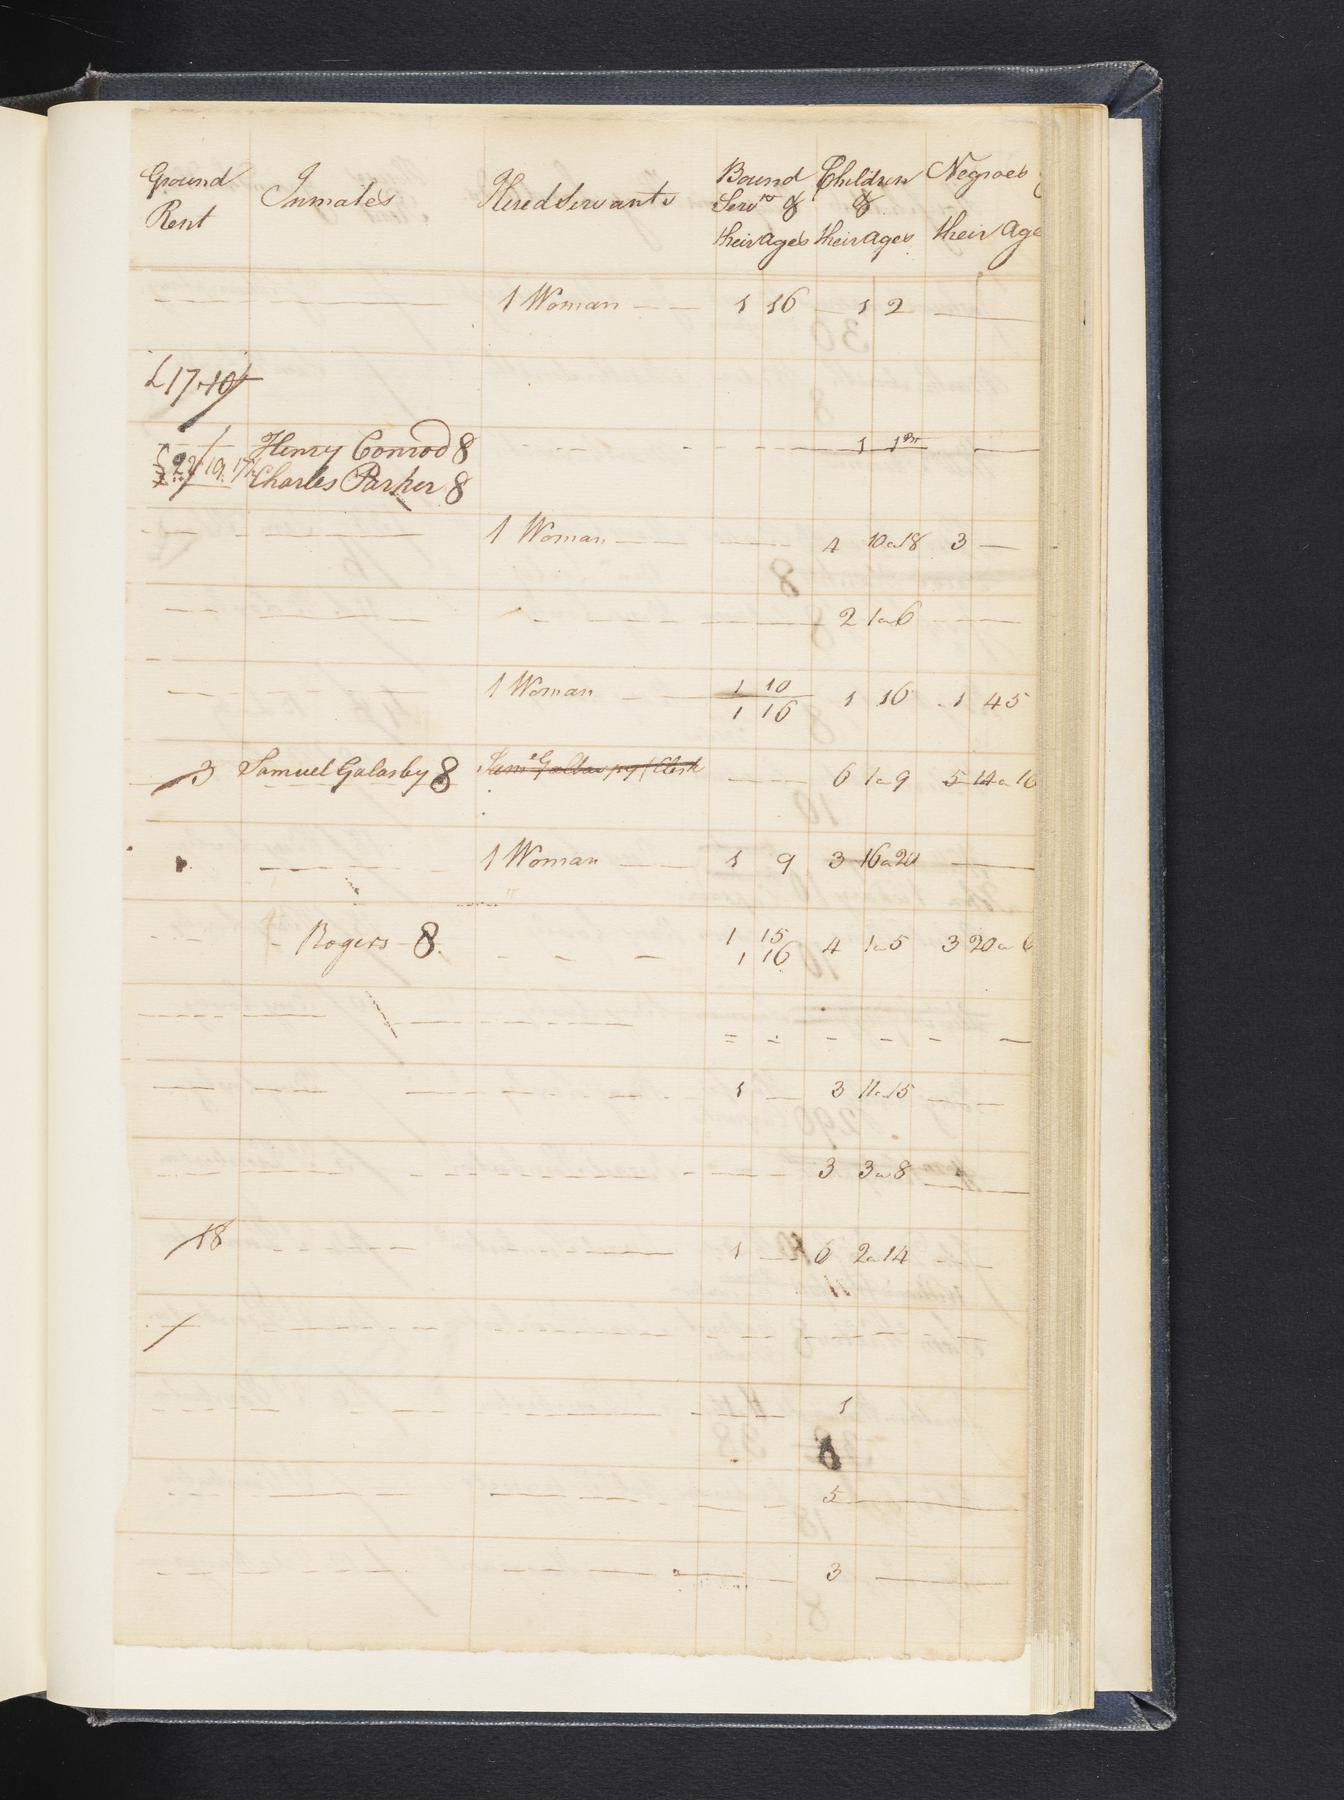 Ground Rent Inmates Hired Servants Bound Servts & their ages Children & their ages Negroes their Age
1 Woman 1 16 1 2
£17.10
Henry Conrod 8 1 1
Charles Parker 8
1 Woman 4 10 a 18 3
2 1 a 6
1 Woman 1 10 1 16 1 45
1 16
3 Samuel Galasby 8 6 1 a 9 5 14 a 16
1 Woman 1 9 3 16 a 20
Rogers 8. 1 15 4 1 a 5 3 20 a 6
1 16
1 3 11 a 15
3 3 a 8
18 1 6 2 a 14
1
5
3